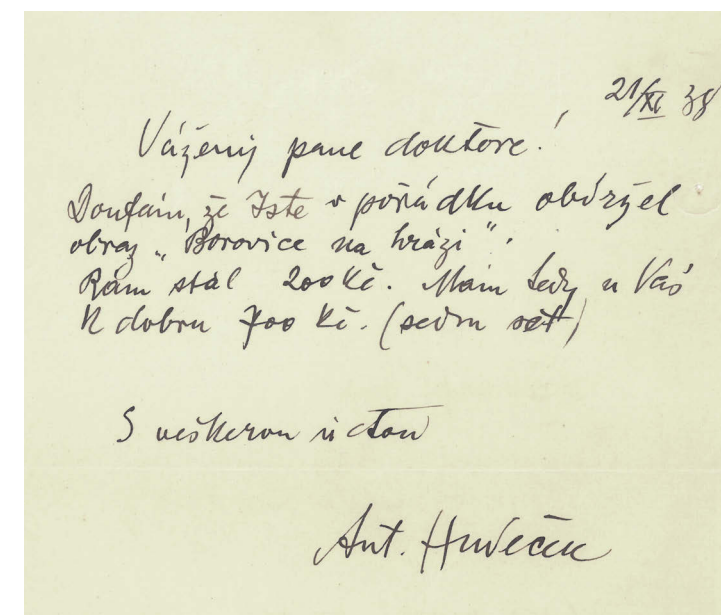 21/XI 38
Vážený pane doktore!
Doufám, že Jste v pořádku obdržel
obraz „Borovice na hrázi".
Rám stál 200 Kč. Mám tedy u Vás
k dobru 700 Kč. (sedm set)
S veškerou úctou
Ant. Hudeček